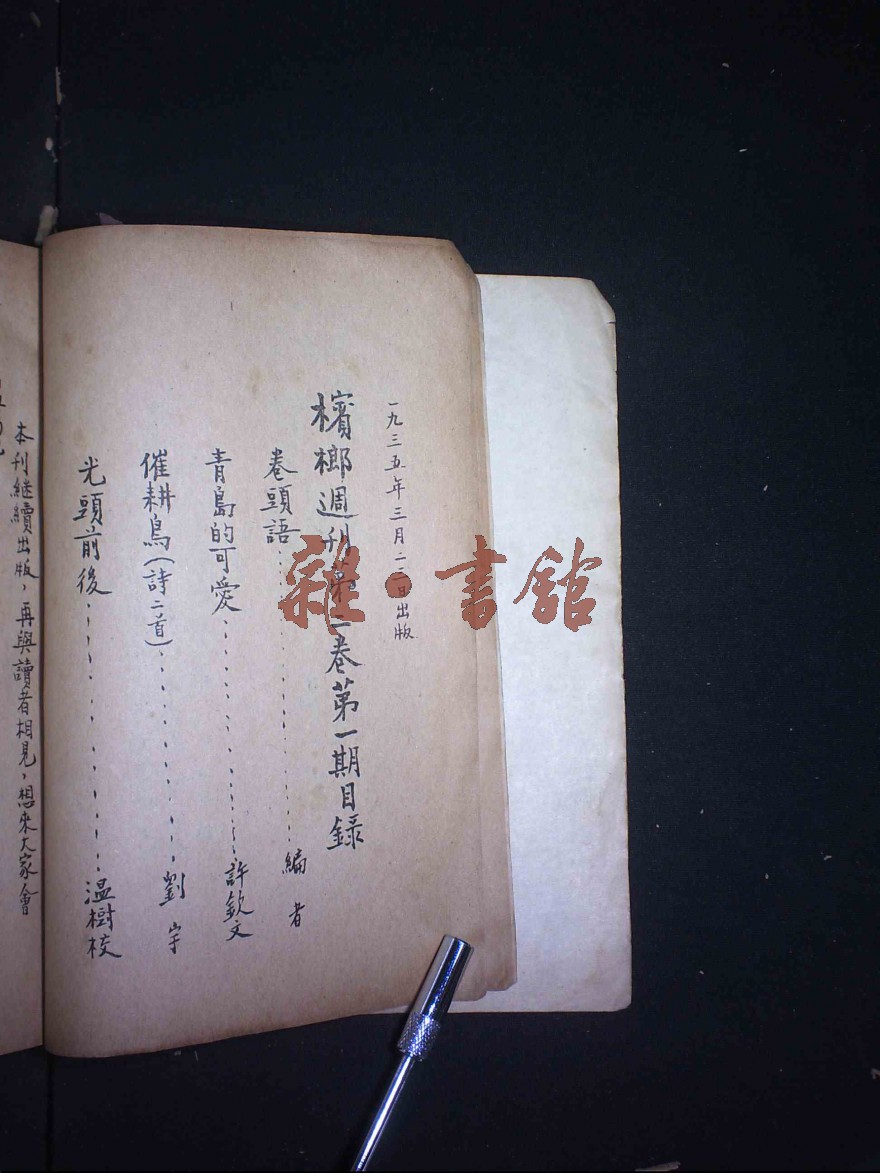 一九三五年三月二二日出版
檳榔週刊第二卷第一期目錄
卷頭語·····················編者
青島的可愛·················許欽文
催耕鳥(詩二首)·············劉宇
光頭前後···················温樹校
本刊継續出版，再與讀者相見，想來大家會
雜·書館